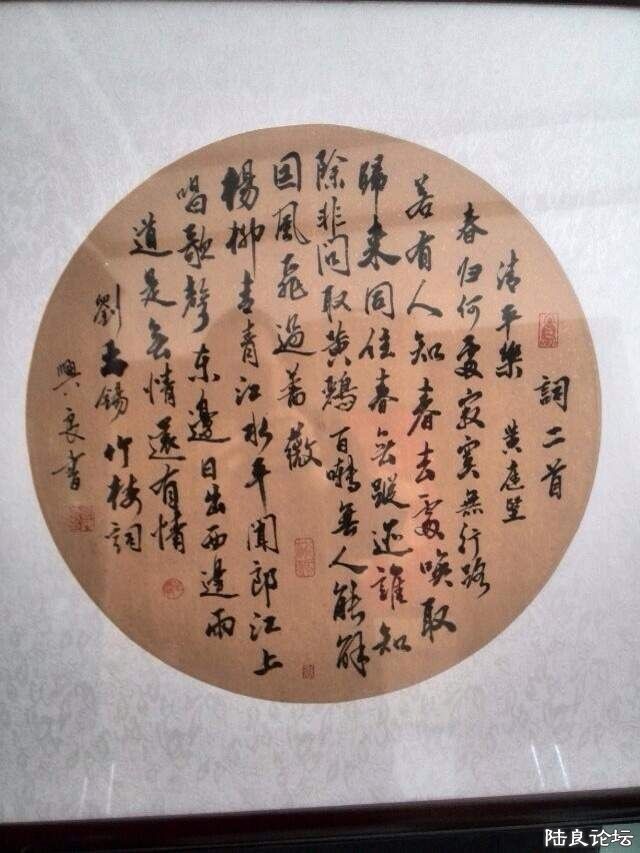 詞二首
清平樂 黄庭坚
春归何處寂寞無行路
若有人知春去處唤取
歸来同住春無蹤迹誰知
除非问取黄鹂百囀無人能解
因風飛過薔薇
楊柳青青江水平聞郎江上
唱歌聲東邊日出西邊雨
道是無情還有情
劉禹錫竹枝詞
興良書
陆良论坛